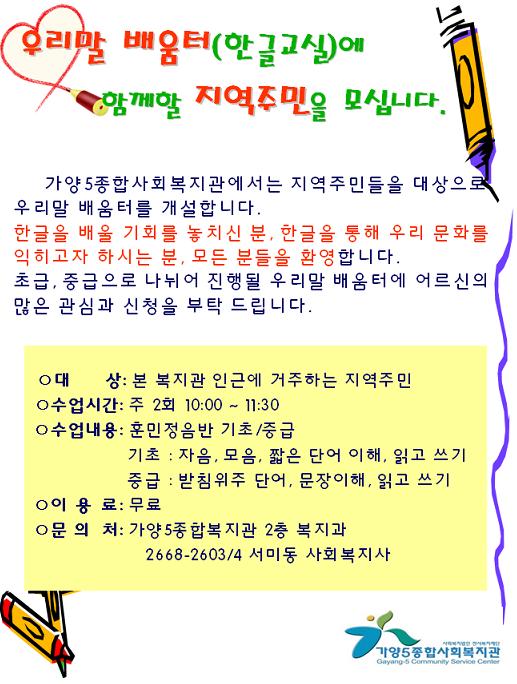 우리말 배움터(한글교실)에
함께할 지역주민을 모십니다.
가양5종합사회복지관에서는 지역주민들을 대상으로
우리말 배움터를 개설합니다.
한글을 배울 기회를 놓치신 분, 한글을 통해 우리 문화를
익히고자 하시는 분, 모든 분들을 환영합니다.
초급, 중급으로 나뉘어 진행될 우리말 배움터에 어르신의
많은 관심과 신청을 부탁 드립니다.
○대 상: 본 복지관 인근에 거주하는 지역주민
○수업시간: 주 2회 10:00 ~ 11:30
○수업내용: 훈민정음반 기초/중급
기초 : 자음, 모음, 짧은 단어 이해, 읽고 쓰기
중급 : 받침위주 단어, 문장이해, 읽고 쓰기
○이 용 료: 무료
○문 의 처: 가양5종합복지관 2층 복지과
2668-2603/4 서미동 사회복지사
가양5종합사회복지관
Gayang-5 Community Service Center